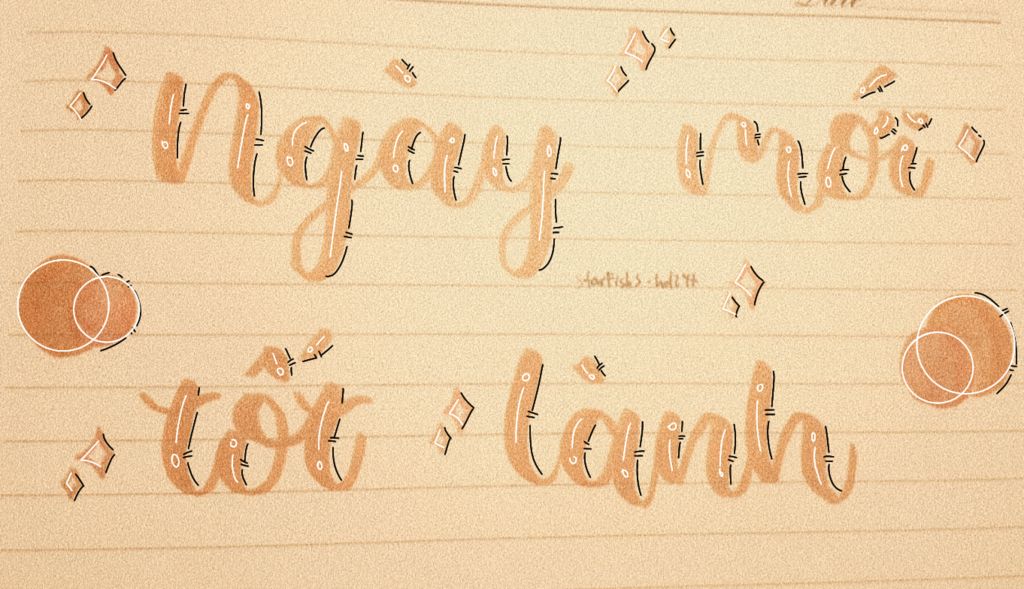 Date
Ngày mới
starfish3 - hd1294
tốt lành